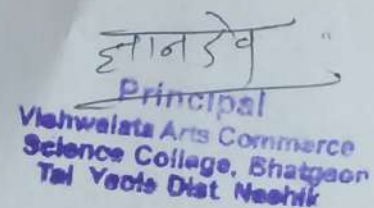 ज्ञानदेव
Principal
Vishwalata Arts Commerce
Science Collage, Bhatgaon
Tal Yeola Dist Nashik